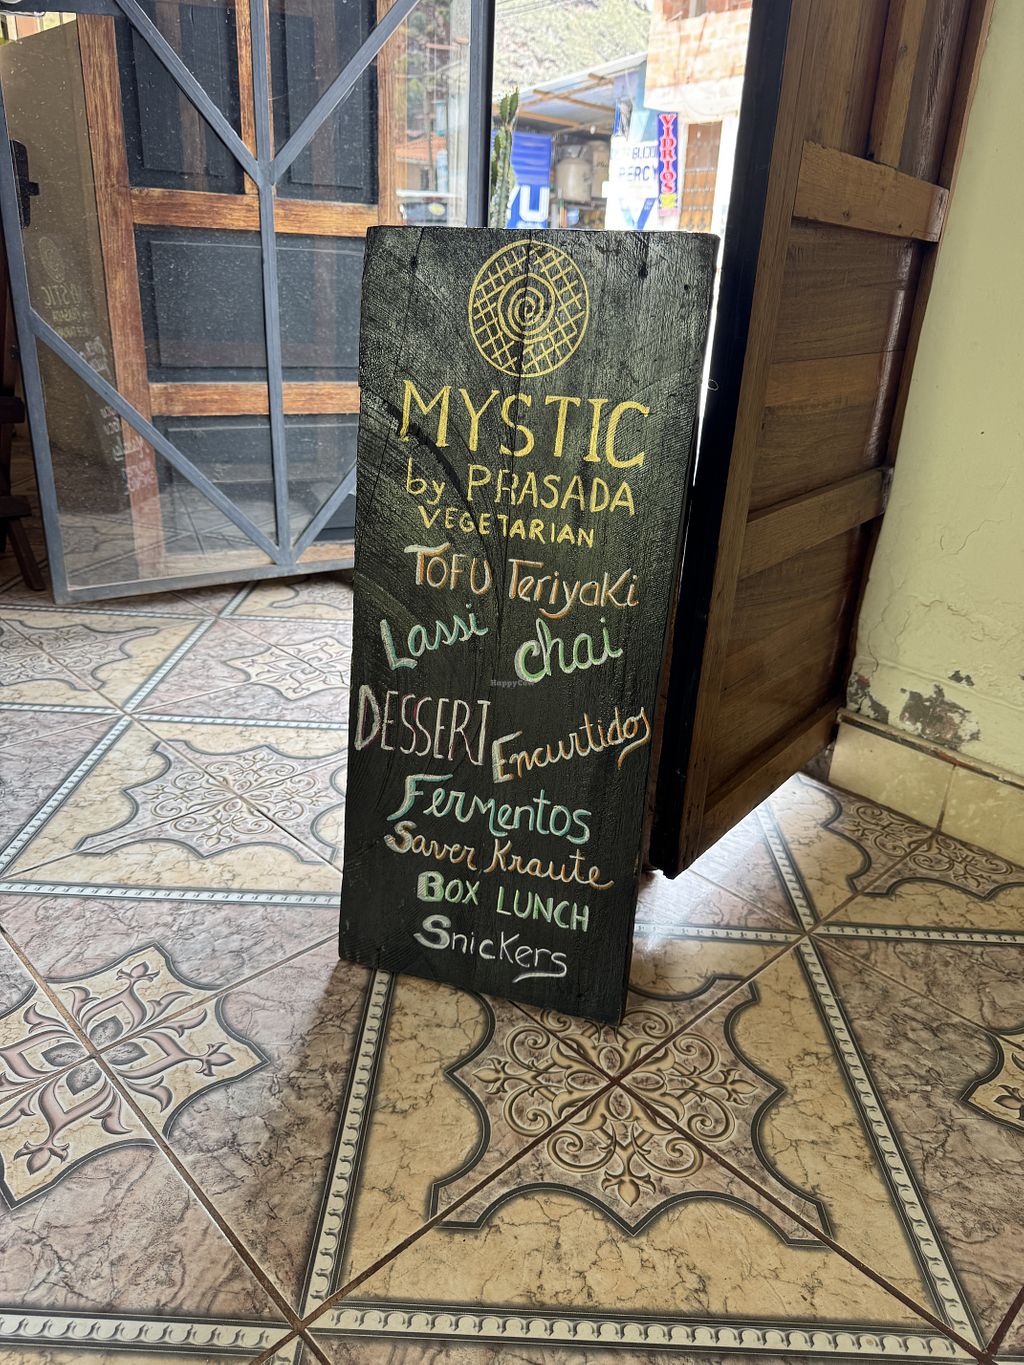 MYSTIC
by PRASADA
VEGETARIAN
TOFU Teriyaki
Lassi chai
DESSERT Encurtidos
Fermentos
Saver Kraute
BOX LUNCH
Snickers
HappyCow
VIDRIOS
PERCY
YU